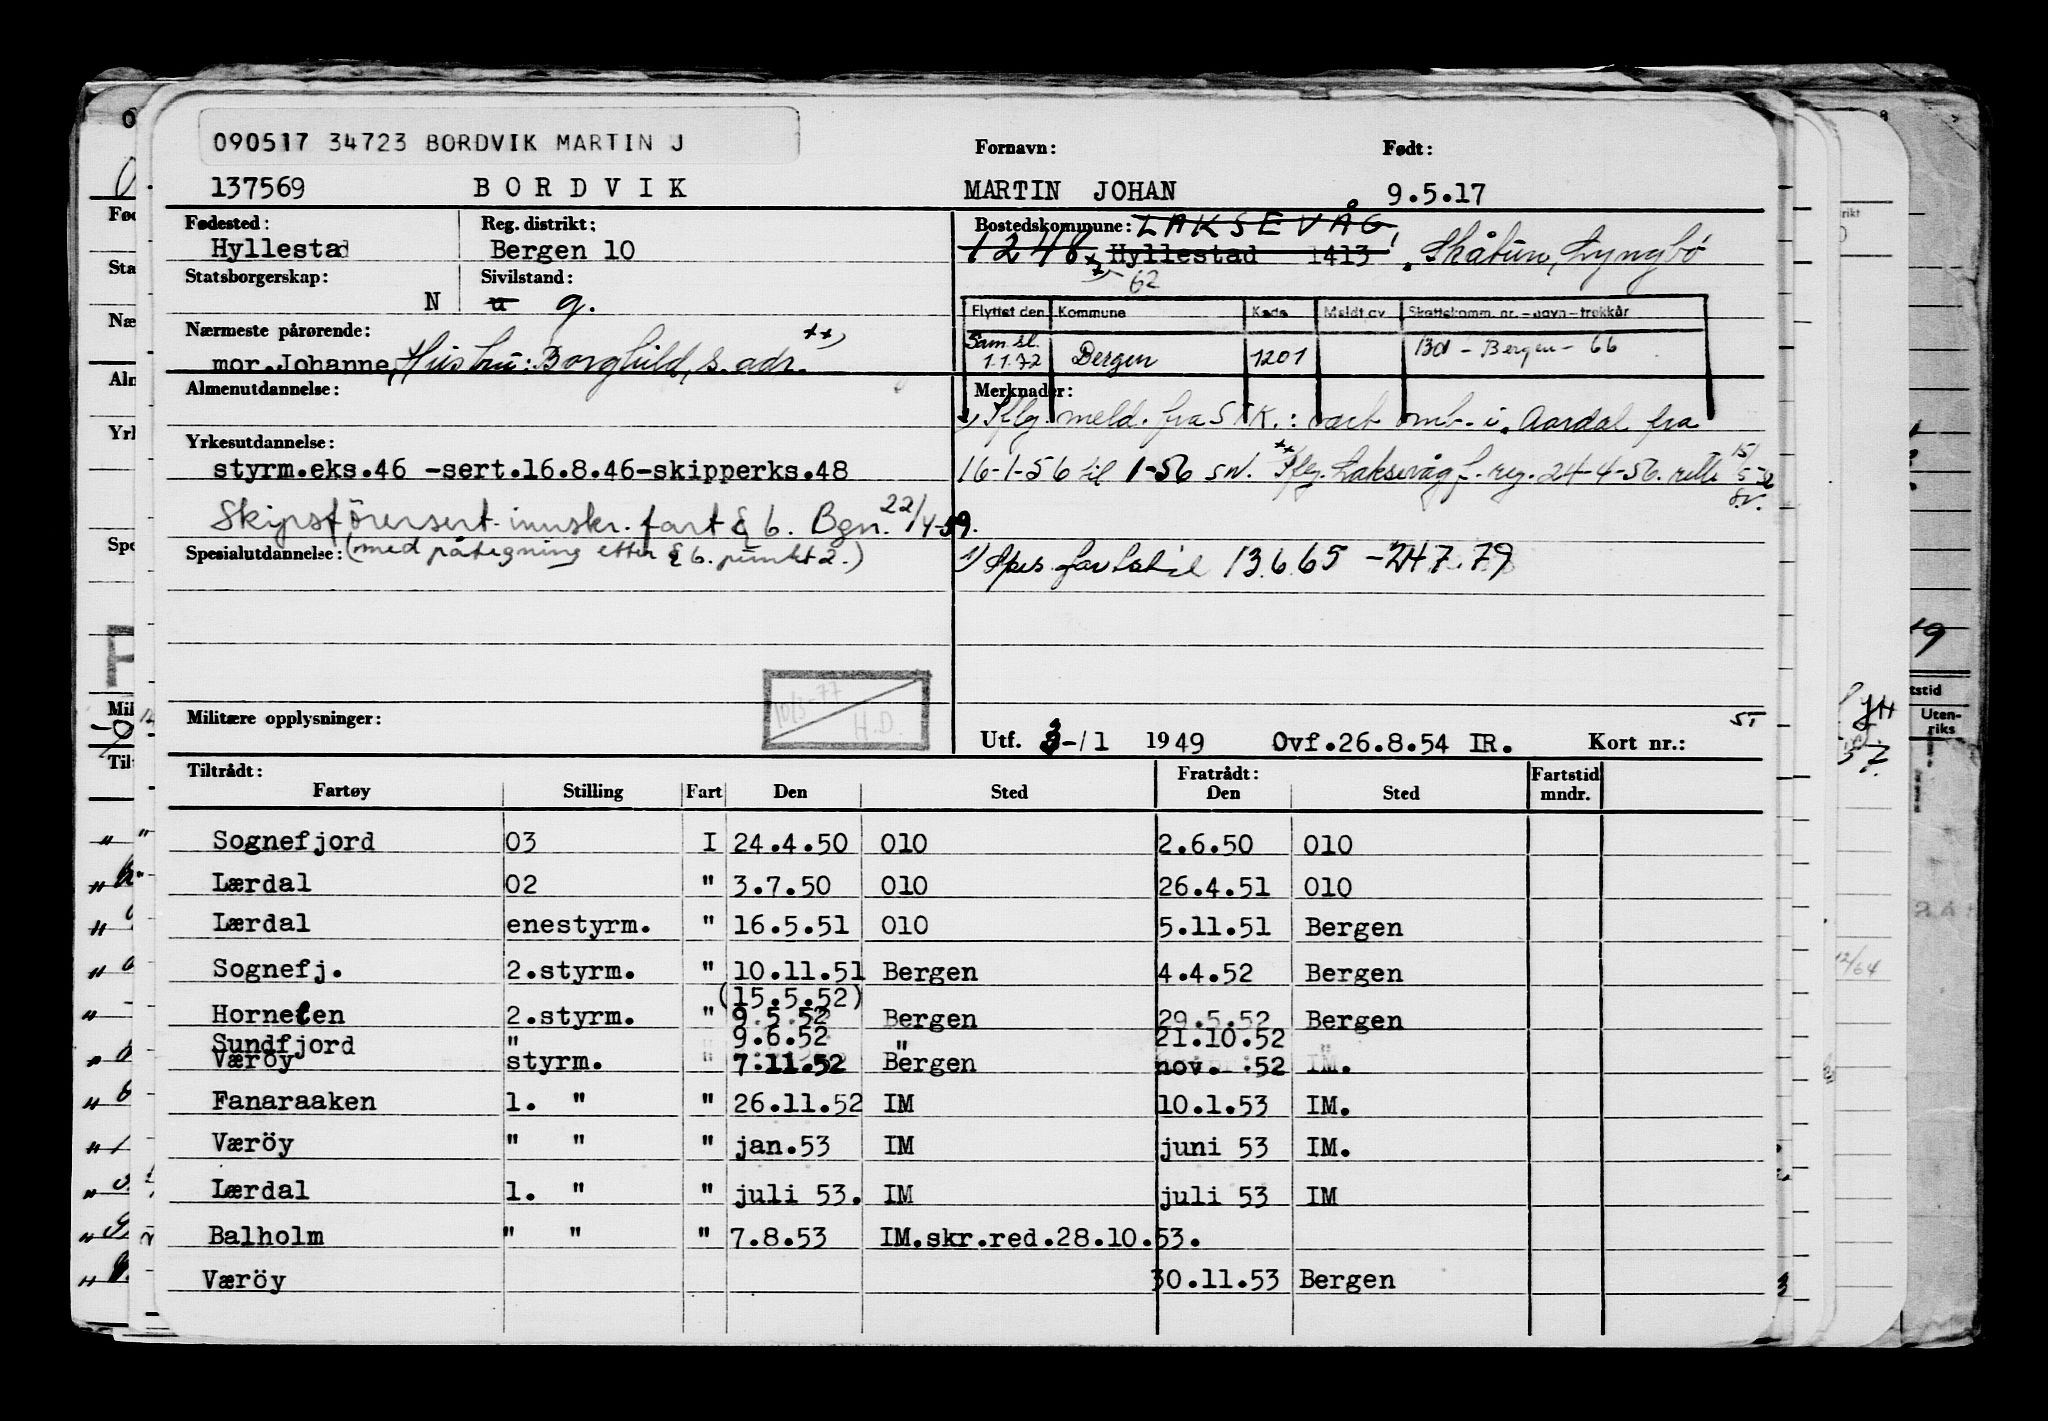 090517 34723 BORDVIK MARTIN J
Fornavn: Født:
137569 BORDVIK MARTIN JOHAN 9.5.17
Fødested: Reg. distrikt: Bostedskommune: LAKSEVÅG
Hyllestad Bergen 10 1248 Hyllestad 1413 Skåtun, Lyngbö
Statsborgerskap: Sivilstand: 62
N u g.
Flyttet den Kommune Kode Meldt av Skattekomm. nr. – navn – trekkår
Sam.sl. 1.1.72 Bergen 1201 Bd - Bergen - 66
Nærmeste pårørende:
mor Johanne, Hustru: Borghild, s. adr. ++)
Almenutdannelse: Merknader:
Iflg. meld. fra STK.: vært omb. i Aardal fra
Yrkesutdannelse:
styrm.eks.46 -sert.16.8.46-skipperks.48 16-1-56 til 1-56 SN. ++ Iflg. Laksevåg f. reg. 24-4-56.
Skipsförersert. innskr. fart § 6. Bgn. 22/4-59.
Spesialutdannelse: (med påtegning etter § 6. punkt 2.) 13.6.65 - 24.7.79
10/3-77
H.D.
Militære opplysninger: ST
Utf. 3-/1 1949 Ovf.26.8.54 IR. Kort nr.:
Tiltrådt: Fratrådt: Fartstid
Fartøy Stilling Fart Den Sted Den Sted mndr.
Sognefjord 03 I 24.4.50 010 2.6.50 010
Lærdal 02 " 3.7.50 010 26.4.51 010
Lærdal enestyrm. " 16.5.51 010 5.11.51 Bergen
Sognefj. 2.styrm. " 10.11.51 Bergen 4.4.52 Bergen
(15.5.52)
Hornelen 2.styrm. " 9.5.52 Bergen 29.5.52 Bergen
Sundfjord " 9.6.52 " 21.10.52 "
Væröy styrm. " 7.11.52 Bergen nov. 52 IM.
Fanaraaken 1. " " 26.11.52 IM 10.1.53 IM.
Væröy " " " jan.53 IM juni 53 IM.
Lærdal 1. " " juli 53. IM juli 53 IM
Balholm " " " 7.8.53 IM.skr.red.28.10.53.
Væröy 30.11.53 Bergen